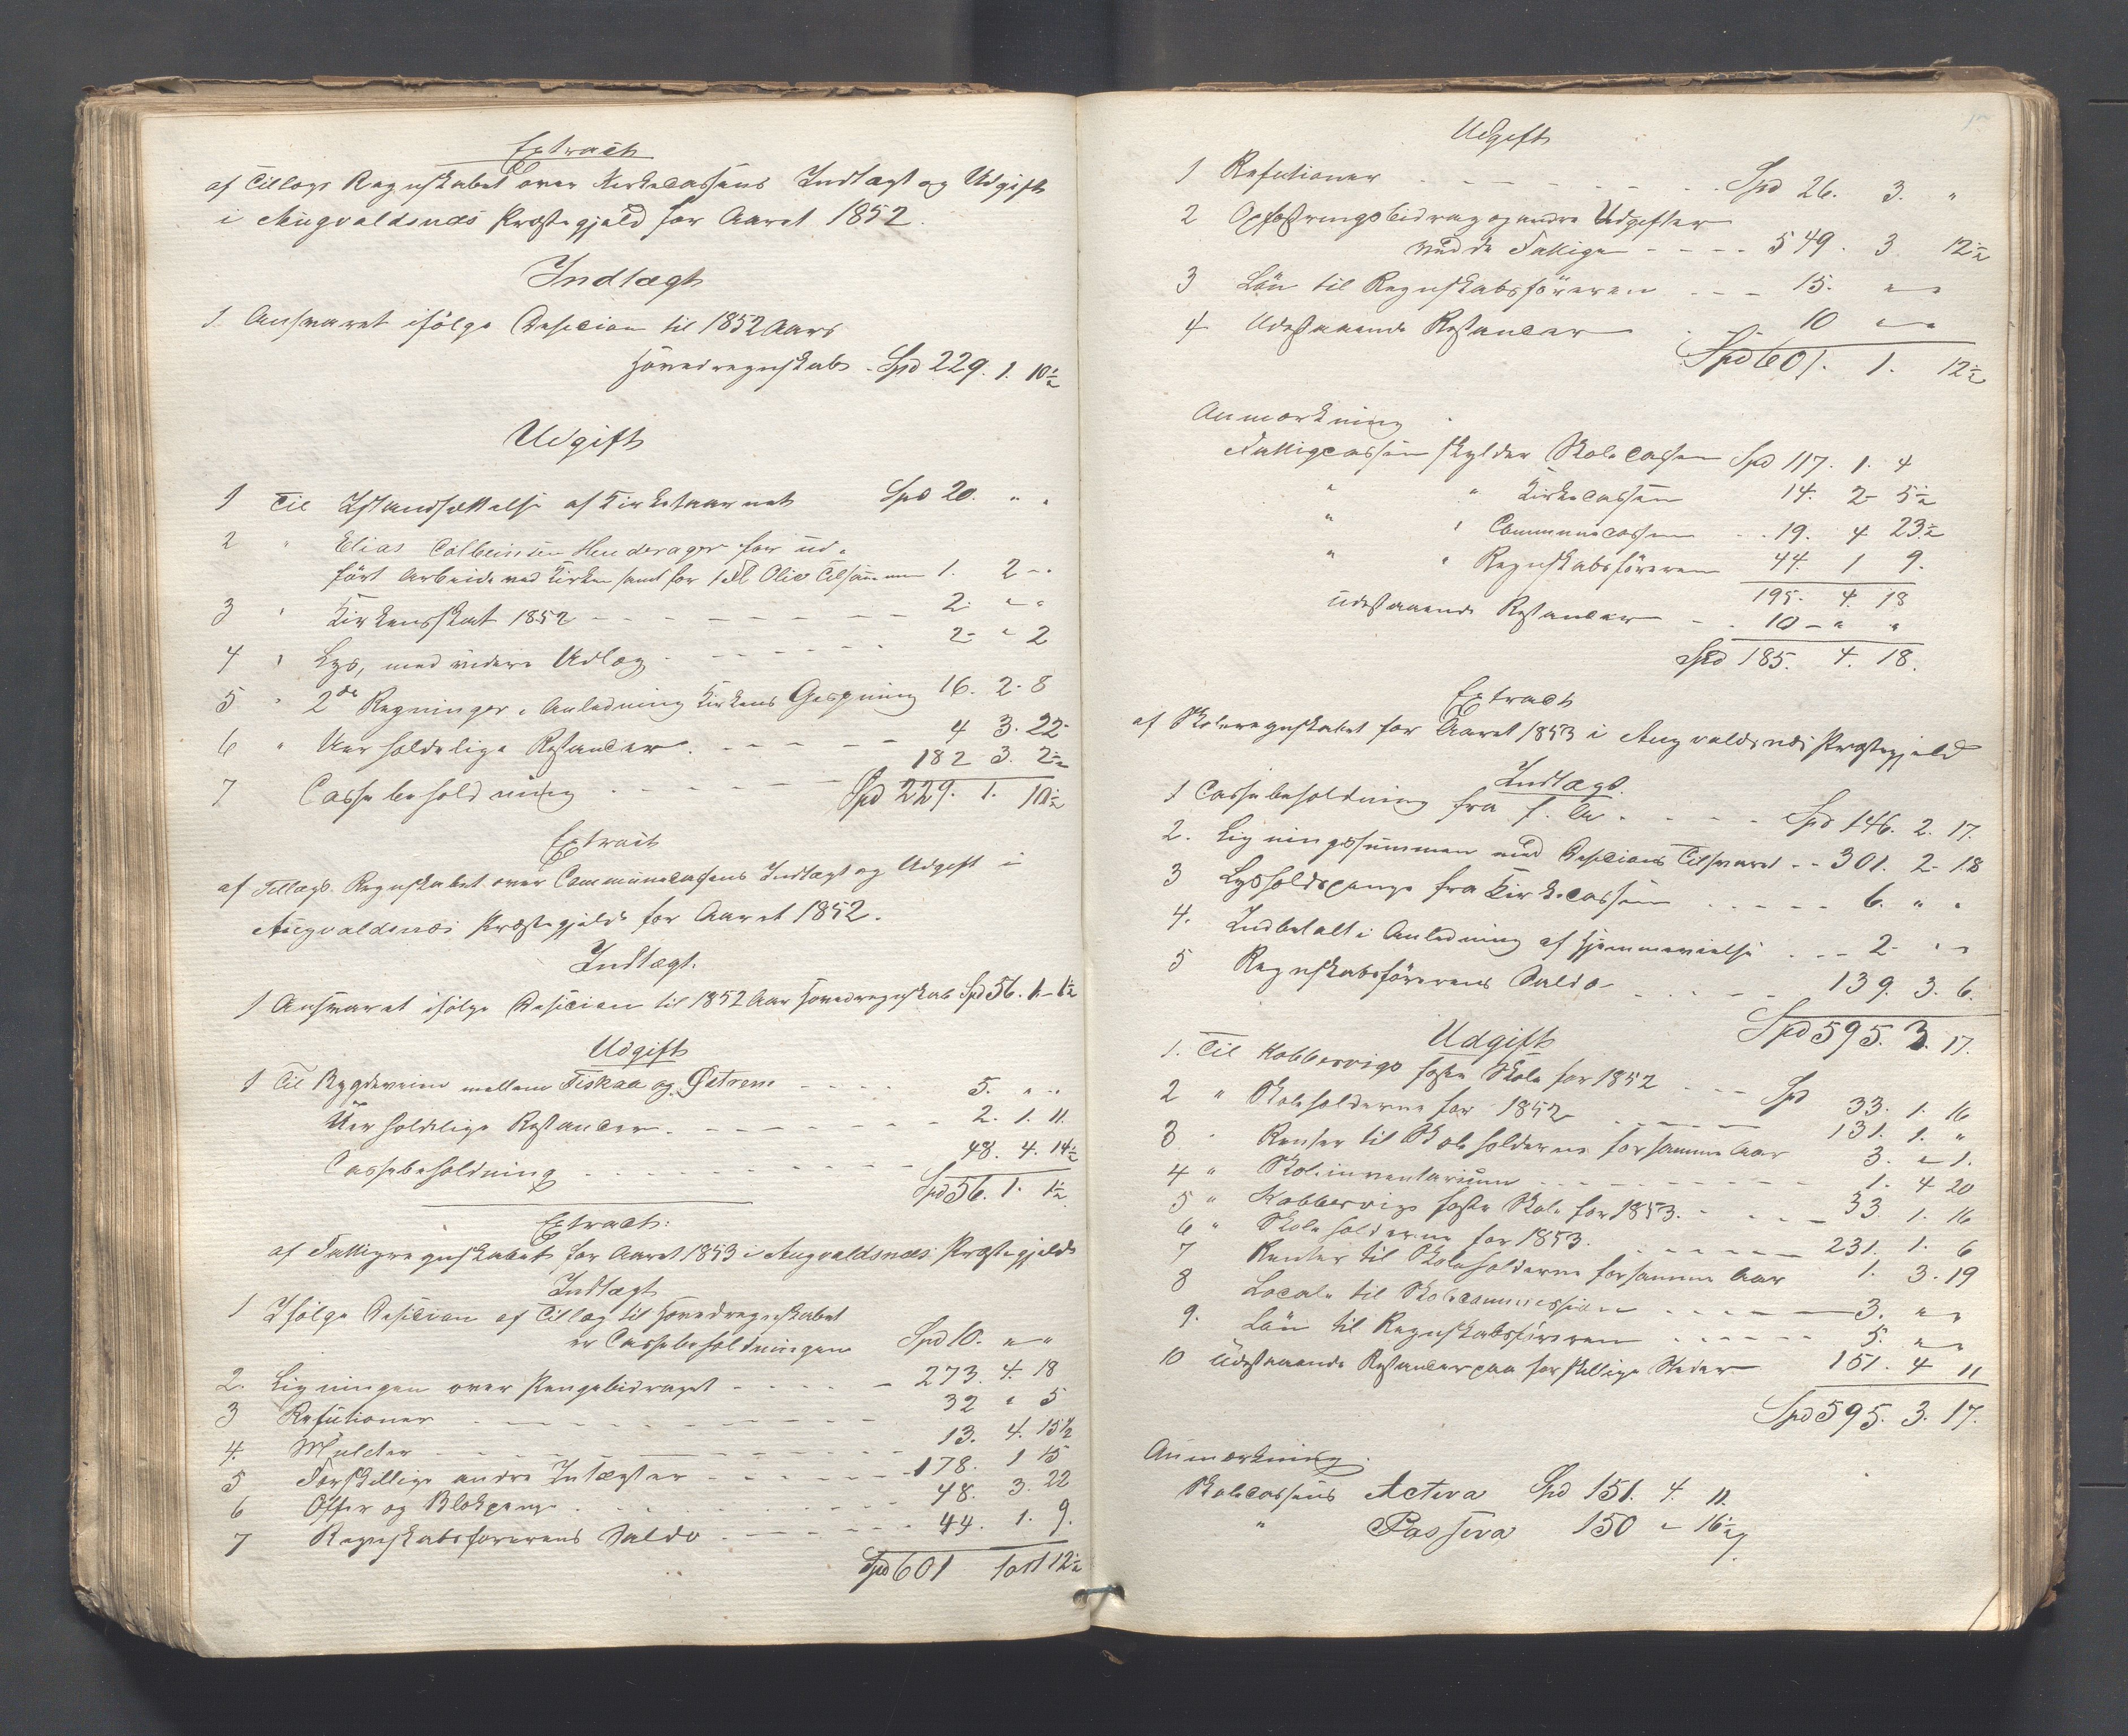 Extract
af Tillægs Regnskabet over Kirkecassens Indtægt og Udgift
i Augvaldsnæs Præstegjeld for Aaret 1852.
Indtægt
1 Ansvaret ifølge Decision til 1852 Aars
Hovedregnskab - Spd 229. 1. 10½
Udgift
1 Til Istandsættelse af Kirketaarnet Spd 20. " "
2 " Elias Henderager for ud-
ført Arbeide ved Kirken samt for 1 Olie tilsammen 1. 2 - "
3 " Kirkenskat 1852 - - - 2. " "
4 " Lys, med videre Udlæg - - - 2 - " 2
5 " 2de Regninger i Anledning Kirkens 16. 2. 8
6 " Uerholdelige Restancer - - - 4 3. 22
7 Cassebeholdning - - - 182 3. 2½
Spd 229. 1. 10½
Extract
af Tillægs Regnskabet over Communecassens Indtægt og Udgift i
Augvaldsnæs Præstegjeld for Aaret 1852.
Indtægt.
1 Ansvaret ifølge Decision til 1852 Aars Hovedregnskab Spd 56. 1 - 1½
Udgift
1 Til Bygdeveien mellem Fiskaa og Østrem - - - 5. " "
Uerholdelige Restancer - - - 2. 1. 11.
Cassebeholdning - - - 48. 4. 14½
Spd 56. 1. 1½
Extract:
af Fattigregnskabet for Aaret 1853 i Augvaldsnæs Præstegjeld
Indtægt
1 Ifølge Decision af Tillæg til Hovedregnskabet
er Cassebeholdningen Spd 10. " "
2. Ligningen over Pengebidraget - - - 273. 4. 18
3 Refutioner - - - 32 " 5
4. Mulcter - - - 13. 4. 15½
5 Forskjellige andre Indtægter - - - 178. 1 15
6 Offer og Blokpenge - - - 48. 3. 22
7 Regnskabsførerens Saldo - - - 44. 1. 9.
Spd 601 1 ort 12½
Udgift
1 Refutioner - - - Spd 26. 3. "
2 Opfostringsbidrag og andre Udgifter
ved de Fattige - - - 549. 3 12½
3 Løn til Regnskabsføreren - - - 15. " "
4 Udestaaende Restancer - - - 10 " "
Spd 601. 1. 12½
Anmærkning
Fattigcassen skylder Skolecassen Spd 117. 1. 4
" " Kirkecassen 14. 2 - 5½
" " Communecassen - - 19. 4 23½
" " Regnskabsføreren 44. 1 9.
195. 4. 18
Udestaaende Restancer - - 10 - " "
Spd 185. 4. 18.
Extract
af Skoleregnskabet for Aaret 1853 i Augvaldsnæs Præstegjeld
Indtægt.
1 Cassebeholdning fra f. Aar - - - Spd 146. 2. 17.
2. Ligningssummen med Decisions Tilsvaret - - 301. 2 - 18
3 Lysholdspenge fra Kirkecassen - - - 6. " "
4. Indbetalt i Anledning af Hjemmevielse - - - 2 - " "
5 Regnskabsførerens Saldo - - - 139. 3. 6.
Spd 595. 3. 17.
Udgift
1. Til Kobbervigs faste Skole for 1852 - - - Spd 33. 1. 16
2 " Skoleholderne for 1852 - - - 131. 1. "
3 " Renter til Skoleholderne for samme Aar 3. " 1.
4 " Skoleinventarium - - - 1. 4 20
5 " Kobbervigs faste Skole for 1853. - - - 33 1. 16
6 " Skoleholderne for 1853. - - - 231. 1. 6
7 Renter til Skoleholderne for samme Aar 1. 3. 19
8 Locale til Skolecommissionen - - - 3. " "
9. Løn til Regnskabsføreren - - - 5. " "
10 Udestaaende Restancer paa forskjellige Steder - 151. 4 11
Spd 595. 3. 17.
Anmærkning.
Skolecassens Activa Spd 151. 4. 11.
" Passiva 150 " 16½